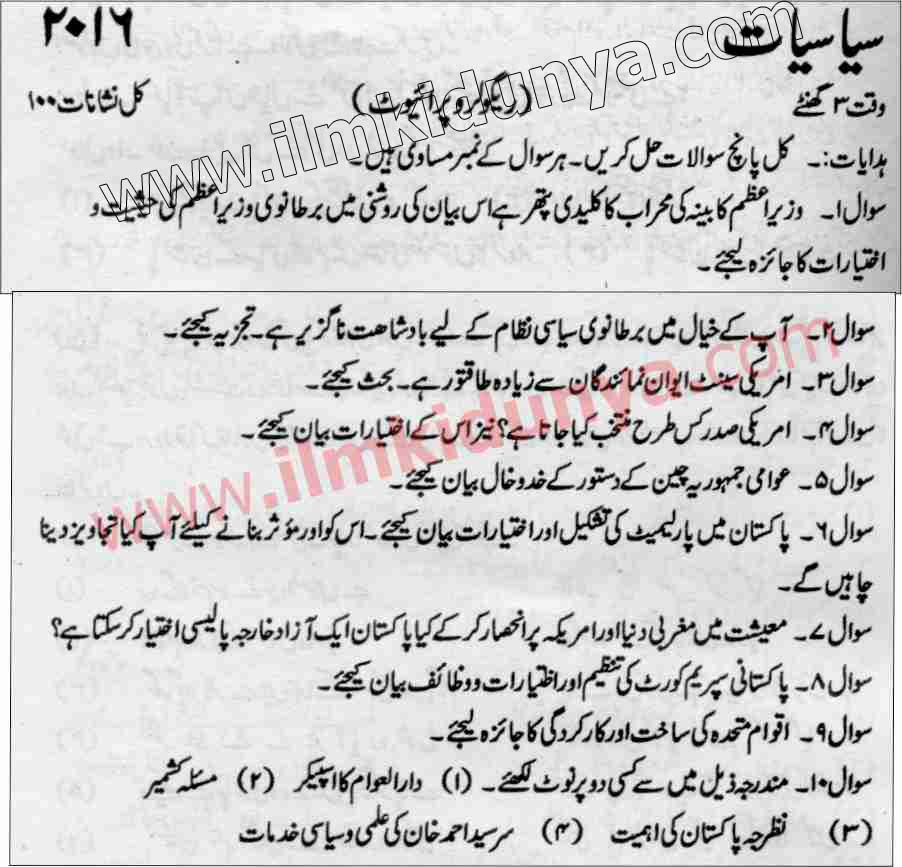 سیاسیات ۲۰۱۶
وقت ۳ گھنٹے (ریگولر و پرائیویٹ) کل نشانات ۱۰۰
ہدایات:۔ کل پانچ سوالات حل کریں۔ ہر سوال کے نمبر مساوی ہیں۔
سوال ۱۔ وزیراعظم کابینہ کی محراب کا کلیدی پتھر ہے اس بیان کی روشنی میں برطانوی وزیراعظم کی حیثیت و
اختیارات کا جائزہ لیجئے۔
سوال ۲۔ آپ کے خیال میں برطانوی سیاسی نظام کے لیے بادشاھت ناگزیر ہے۔ تجزیہ کیجئے۔
سوال ۳۔ امریکی سینٹ ایوان نمائندگان سے زیادہ طاقتور ہے۔ بحث کیجئے۔
سوال ۴۔ امریکی صدر کس طرح منتخب کیا جاتا ہے؟ نیز اس کے اختیارات بیان کیجئے۔
سوال ۵۔ عوامی جمہوریہ چین کے دستور کے خدوخال بیان کیجئے۔
سوال ۶۔ پاکستان میں پارلیمیٹ کی تشکیل اور اختیارات بیان کیجئے۔ اس کو اور مؤثر بنانے کیلئے آپ کیا تجاویز دینا
چاہیں گے۔
سوال ۷۔ معیشت میں مغربی دنیا اور امریکہ پر انحصار کر کے کیا پاکستان ایک آزاد خارجہ پالیسی اختیار کر سکتا ہے؟
سوال ۸۔ پاکستانی سپریم کورٹ کی تنظیم اور اختیارات و وظائف بیان کیجئے۔
سوال ۹۔ اقوام متحدہ کی ساخت اور کارکردگی کا جائزہ لیجئے۔
سوال ۱۰۔ مندرجہ ذیل میں سے کسی دو پر نوٹ لکھئے۔ (۱) دارالعوام کا اسپیکر (۲) مسئلہ کشمیر
(۳) نظرجہ پاکستان کی اہمیت (۴) سرسید احمد خان کی علمی و سیاسی خدمات
www.ilmkidunya.com
www.ilmkidunya.com